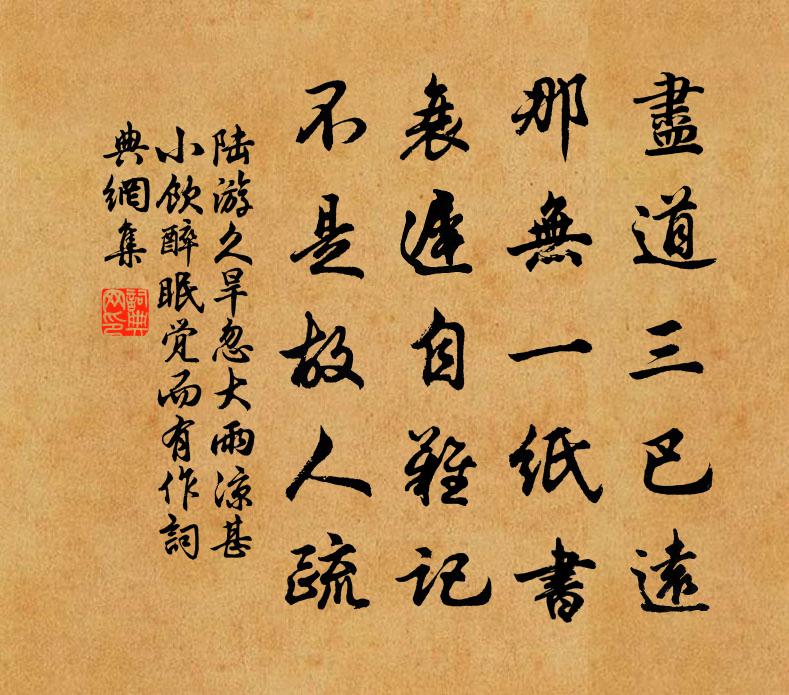 盡道三巴遠
那無一紙書
衰遲自難記
不是故人疏
陸游久旱忽大雨涼甚
小飲醉眠覚而有作詞
典網集
詞典
网印